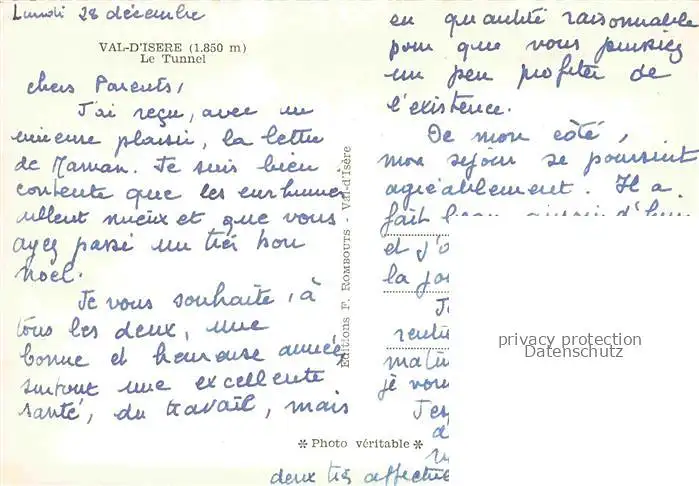 Lundi 28 décembre
VAL-D'ISERE (1.850 m)
Le Tunnel
chers Parents,
J'ai reçu, avec un
immense plaisir, la lettre
de Maman. Je suis bien
contente que les enrhumés
aillent mieux et que vous
ayez passé un très bon
noël.
Je vous souhaite, à
tous les deux, une
bonne et heureuse année
surtout une excellente
santé, du travail, mais
Editions F. ROMBOUTS - Val-d'Isère
en quantité raisonnable
pour que vous puissiez
un peu profiter de
l'existence.
De mon côté,
mon séjour se poursuit
agréablement. Il a
fait beau aujourd'hui
et j'
la
je vou
privacy protection
Datenschutz
✻ Photo véritable ✻
deux très affectue